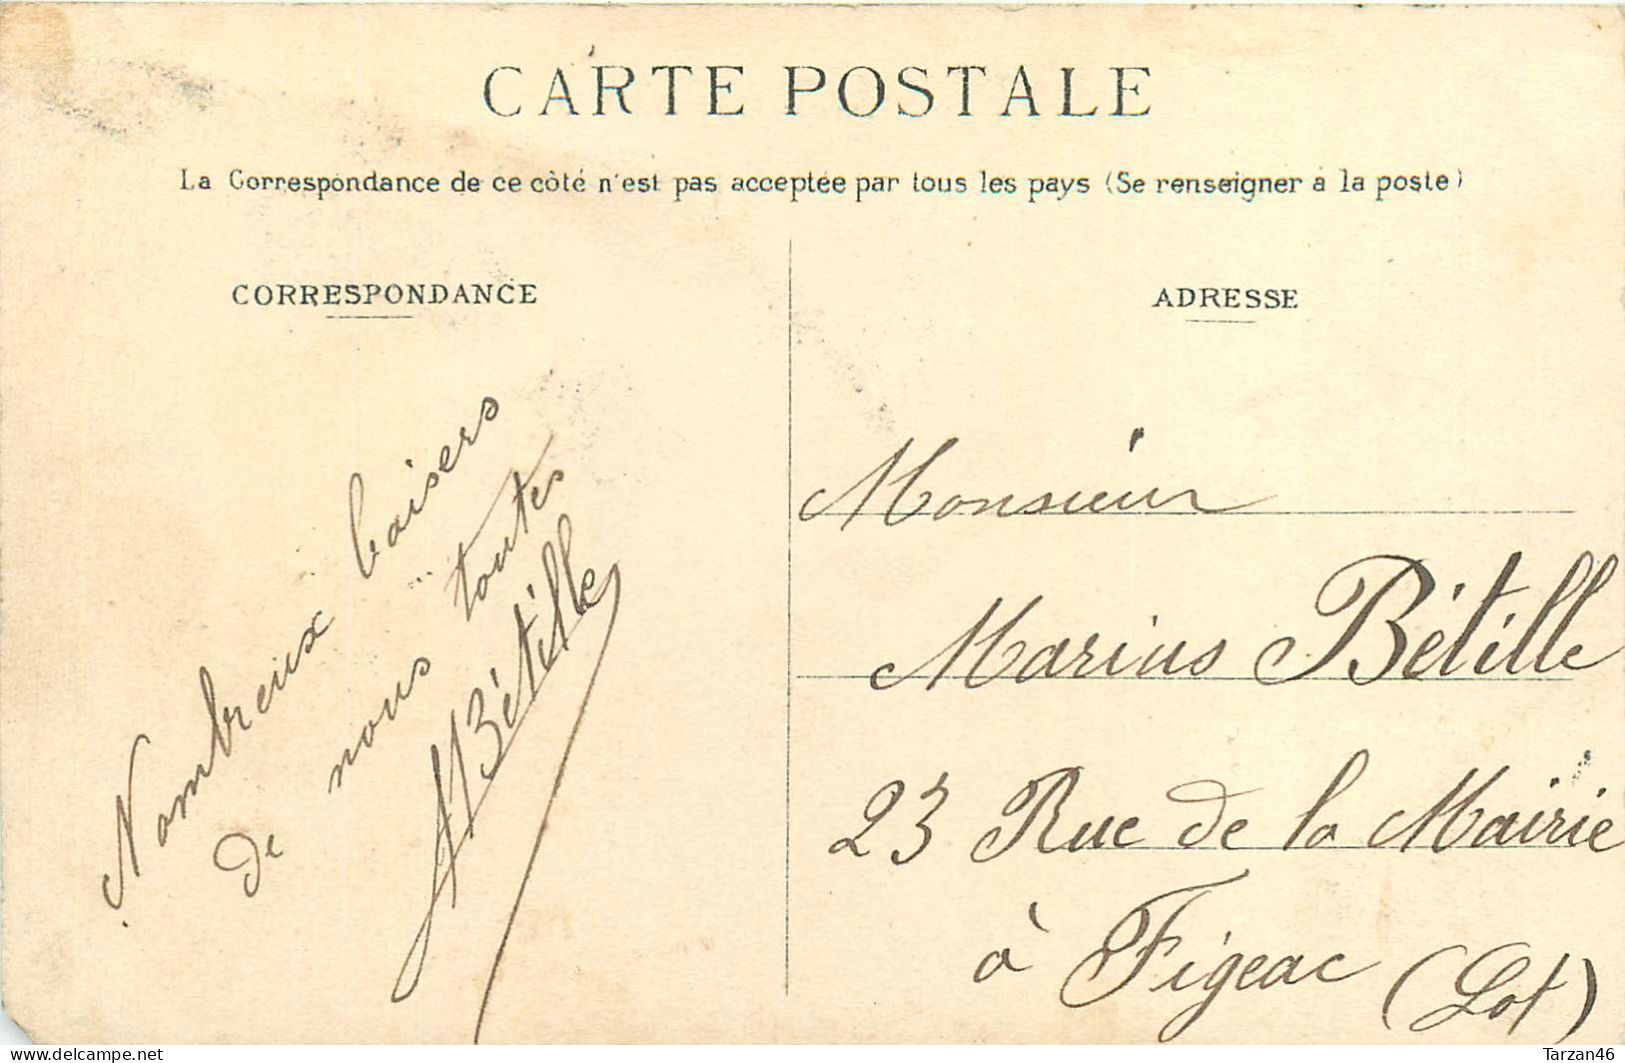 CARTE POSTALE
La Correspondance de ce côté n'est pas acceptée par tous les pays (Se renseigner à la poste)
CORRESPONDANCE
Nombreux baisers
de nous toutes
ABétille
ADRESSE
Monsieur
Marius Bétille
23 Rue de la Mairie
à Figeac (Lot)
Tarzan46
https://www.delcampe.net